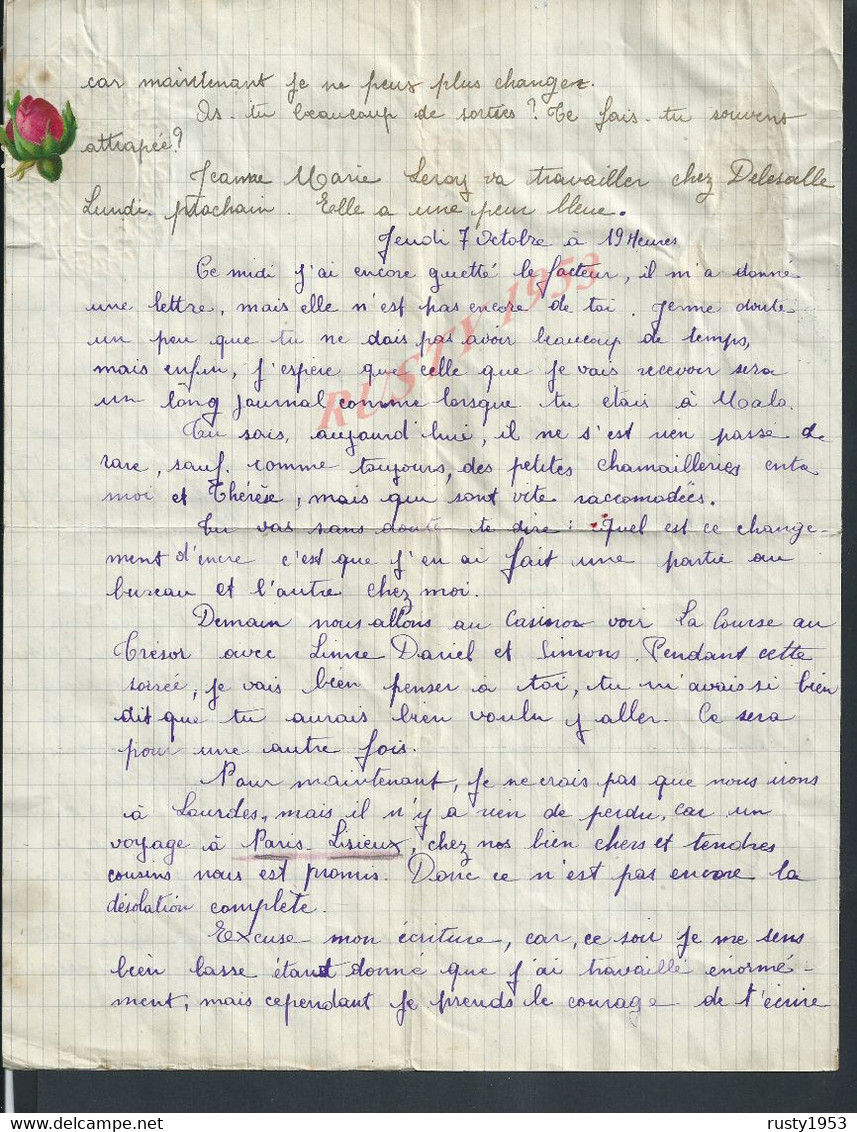 car maintenant je ne peux plus changer.
As-tu beaucoup de sorties? Te fais-tu souvent
attrapée?
Jeanne Marie Leroy va travailler chez Delesalle
Lundi prochain. Elle a une peur bleue.
Jeudi 7 Octobre à 19 Heures
Ce midi j'ai encore guetté le facteur, il m'a donné
une lettre, mais elle n'est pas encore de toi. Je me doute
un peu que tu ne dois pas avoir beaucoup de temps,
mais enfin, j'espère que celle que je vais recevoir sera
un long journal comme lorsque tu étais à Malo.
Tu sais, aujourd'hui, il ne s'est rien passé de
rare, sauf comme toujours, des petites chamailleries entre
moi et Thérèse, mais qui sont vite raccomodées.
Tu vas sans doute te dire: Quel est ce change-
ment d'encre c'est que j'en ai fait une partie au
bureau et l'autre chez moi.
Demain nous allons au Casino voir la Course au
Trésor avec Linne Daniel et Simons. Pendant cette
soirée, je vais bien penser à toi, tu m'avais si bien
dit que tu aurais bien voulu y aller. Ce sera
pour une autre fois.
Pour maintenant, je ne crois pas que nous irons
à Lourdes, mais il n'y a rien de perdu, car un
voyage à Paris-Lisieux, chez nos bien chers et tendres
cousins nous est promis. Donc ce n'est pas encore la
désolation complète.
Excuse mon écriture, car, ce soir je me sens
bien lasse étant donné que j'ai travaillé énormé-
ment, mais cependant je prends le courage de t'écrire
RUSTY 1953
www.delcampe.net
rusty1953